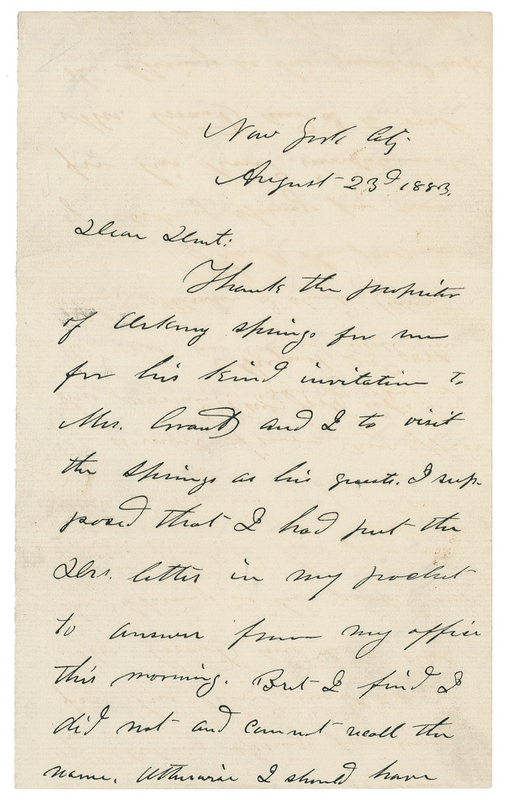 New York City
August 23d 1883.
Dear Dent:
Thank the propritor
of springs for me
for his kind invitation to
Mrs. Grant and I to visit
the springs as his guests. I sup-
posed that I had put the
Drs. letter in my pocket
to answer from my office
this morning. But I find I
did not and cannot recall the
name. Otherwise I should have